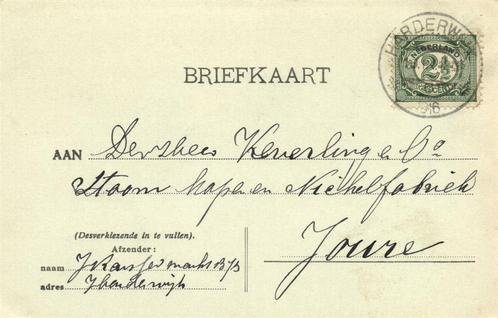 HARDERWIJK
NEDERLAND
2½
CENT
BRIEFKAART
AAN Keverling & Co
Stoom Koper en Nichelfabriek
Joure
(Desverkiezende in te vullen).
Afzender:
naam
adres Harderwijk